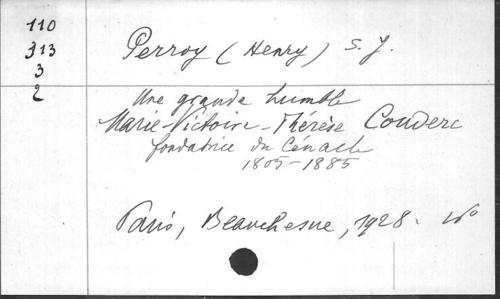 110
313
3
2
Perroy (Henry) S. J.
Une grande humble
Marie-Victoire-Thérèse Couderc
fondatrice du Cénacle
1805-1885
Paris, Beauchesne, 1928. in-8°